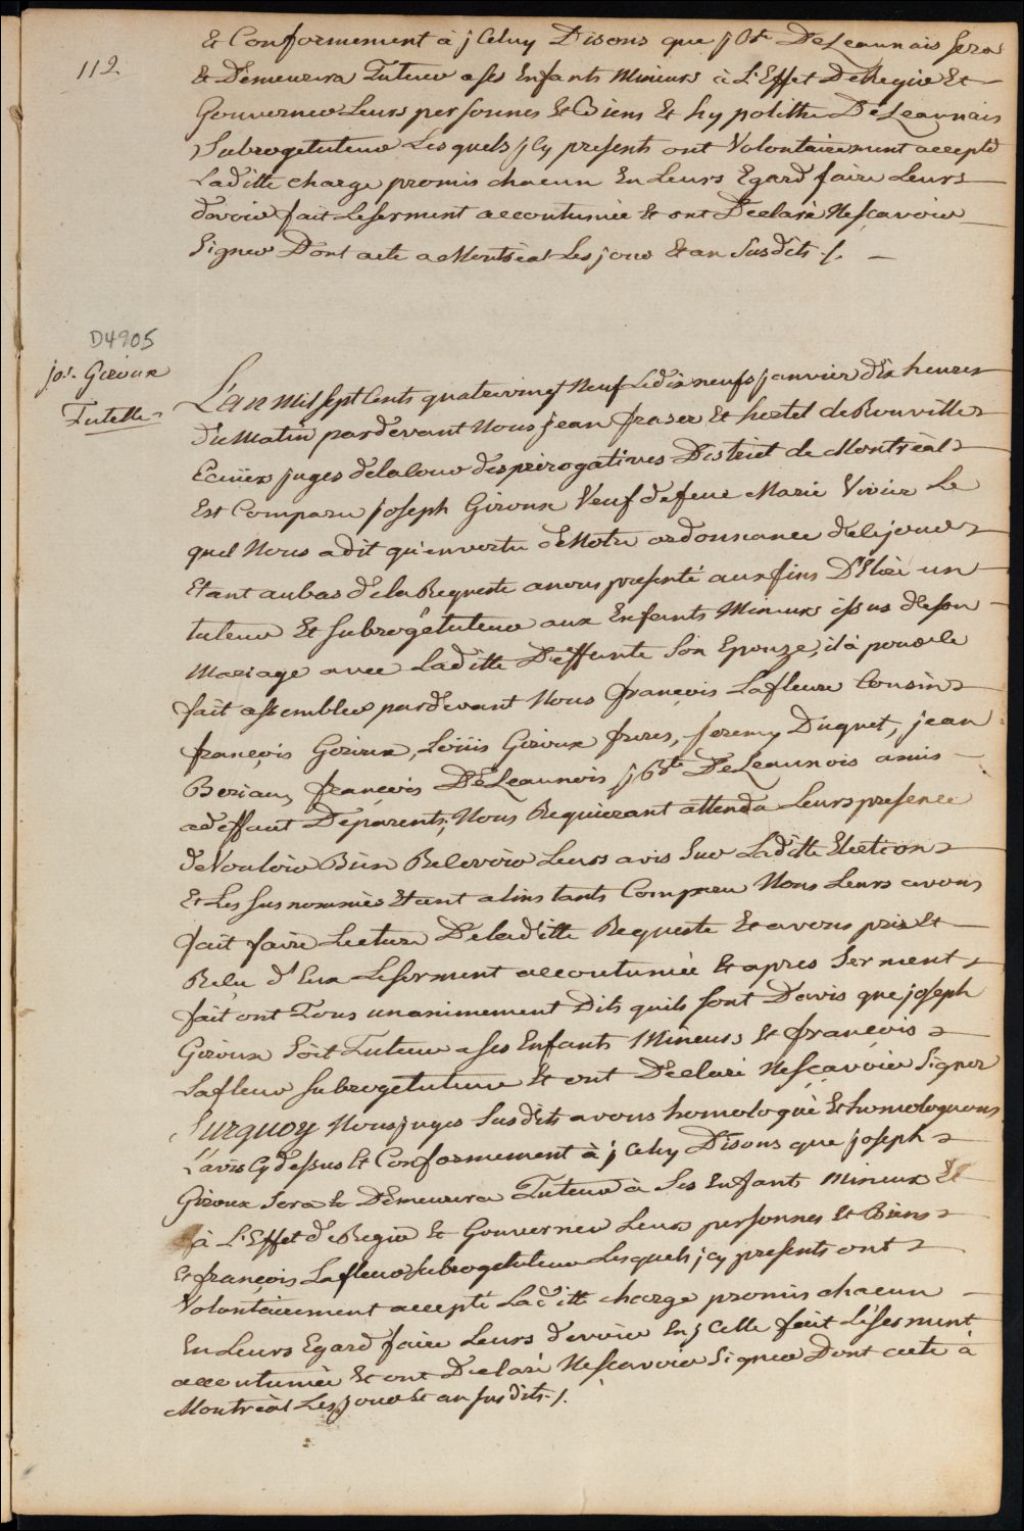 112.
& Conformement à jCeluy Disons que j Bte DeLeaunais sera
& Demeurera Tuteur a ses Enfants Mineurs à L'Effet DeRegir Et
Gouverner Leurs personnes & Biens & hypolithe DeLeaunais
Subrogetuteur Lesquels jCy presents ont Volontairement accepté
Laditte charge promis chacun En Leurs Egard faire Leurs
devoir fait Leserment accoutumée & ont Declaré Nesçavoir
Signer Dont acte a Montréal Les jour & an Susdits ./.
D4905
jos. Giroux
Tutelle
L'an mil sept Cents quatrevingt Neuf Ledix neufs janvier dix heures
du Matin pardevant Nous jean fraser Et hertel deRouville
Ecuiiers juges delaCour desprérogatives District de Montréal
Est Comparu joseph Giroux Veuf defeue Marie Vivier Le
quel Nous adit qu'envertu deNotre ordonnance deCejour
Etant aubas delaRequeste anous presenté auxfins D'Elire un
tuteur Et Subrogétuteur aux Enfants Mineurs issus deson
Mariage avec Laditte Deffunte Son Epouze, il à pourCe
fait assembler pardevant Nous françois Lafleur Cousin
françois Giroux, Loüis Giroux freres, Jeremy Duquet, jean
Beriau, françois DeLeaunois j Bte DeLeaunois amis
adeffaut Deparents, Nous Requierant attendu Leurs presence
deVouloir Bien Recevoir Leurs avis Sur Laditte Election
Et Les Susnommés Etant alinstants Comparu Nous Leurs avons
fait faire Lecture Deladitte Requeste Et avons pris Et
Reçu d'Eux Leserment accoutumée Et apres Serment
fait ont Tous unanimement Dits quils sont Davis que joseph
Giroux Soit Tuteur a ses Enfants Mineurs & françois
Lafleur Subrogetuteur & ont Declaré Nesçavoir Signer
Surquoy Nous juges Susdits avons homologué Et homologuons
L'avis Cydessus Et Conformement à jCeluy Disons que joseph
Giroux Sera & Demeurera Tuteur à Ses Enfants Mineurs Et
à L'Effet deRegir Et Gouverner Leurs personnes Et Biens
& françois Lafleur Subrogetuteur Lesquels jCy presents ont
Volontairement accepté Laditte charge promis chacun
En Leurs Egard faire Leurs devoir En jCelle fait Leserment
accoutumée Et ont Declaré Nesçavoir Signer Dont acte à
Montréal Les jour Et an susdits ./.